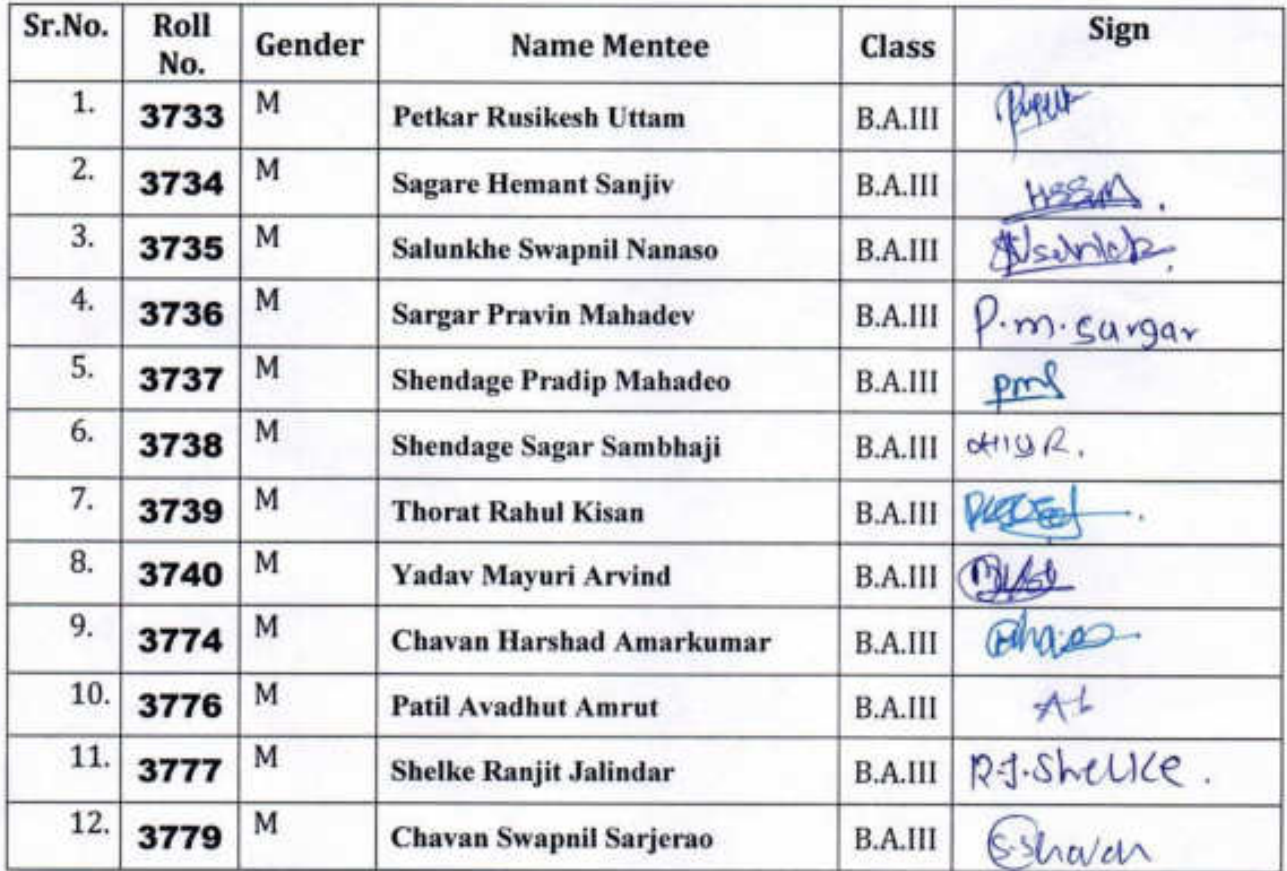 Sr.No. Roll No. Gender Name Mentee Class Sign
1. 3733 M Petkar Rusikesh Uttam B.A.III
2. 3734 M Sagare Hemant Sanjiv B.A.III
3. 3735 M Salunkhe Swapnil Nanaso B.A.III
4. 3736 M Sargar Pravin Mahadev B.A.III P.m.sargar
5. 3737 M Shendage Pradip Mahadeo B.A.III
6. 3738 M Shendage Sagar Sambhaji B.A.III
7. 3739 M Thorat Rahul Kisan B.A.III
8. 3740 M Yadav Mayuri Arvind B.A.III
9. 3774 M Chavan Harshad Amarkumar B.A.III
10. 3776 M Patil Avadhut Amrut B.A.III
11. 3777 M Shelke Ranjit Jalindar B.A.III R.J.Shelke.
12. 3779 M Chavan Swapnil Sarjerao B.A.III